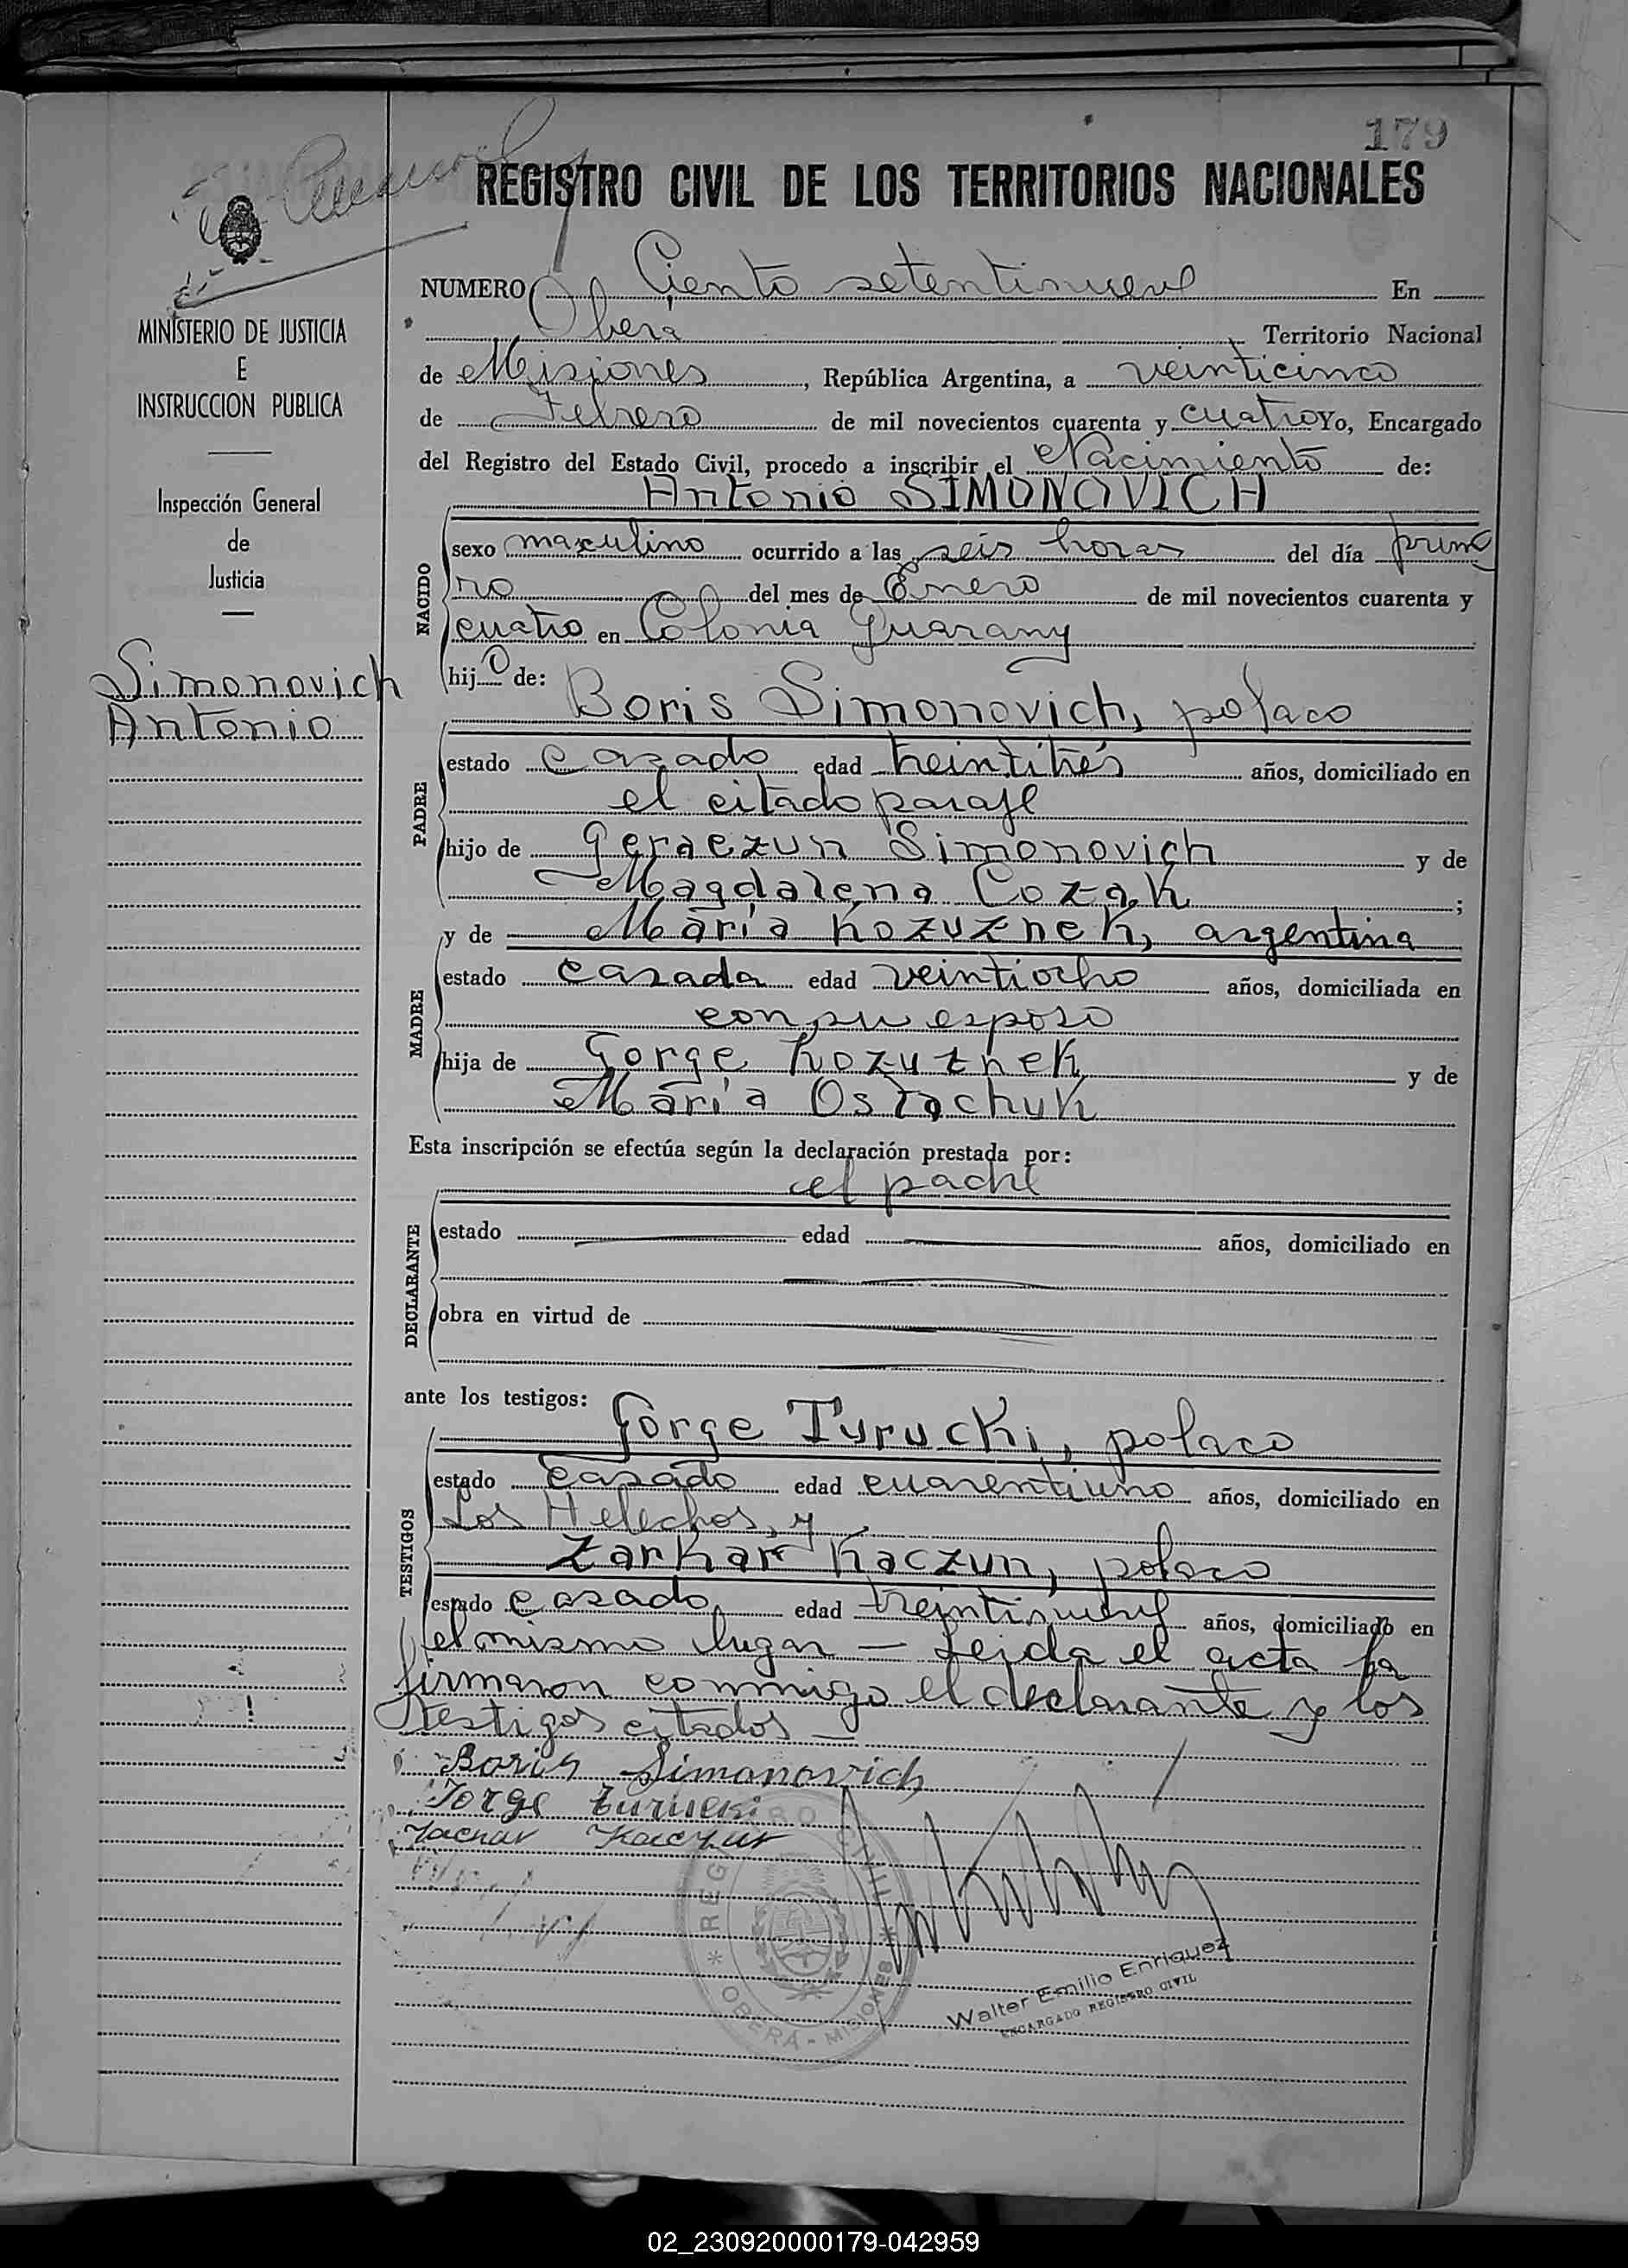 179
REGISTRO CIVIL DE LOS TERRITORIOS NACIONALES
NUMERO Ciento setentinueve En
Oberá Territorio Nacional
de Misiones, República Argentina, a veinticinco
de Febrero de mil novecientos cuarenta y cuatro Yo, Encargado
del Registro del Estado Civil, procedo a inscribir el Nacimiento de:
Antonio SIMONOVICH
NACIDO
sexo masculino ocurrido a las seis horas del día prime
ro del mes de Enero de mil novecientos cuarenta y
cuatro en Colonia Guarany
hijo de:
Boris Simonovich, polaco
PADRE
estado casado edad treintitrés años, domiciliado en
el citado paraje
hijo de Geraezun Simonovich y de
Magdalena Cozak;
y de María Kozuznek, argentina
MADRE
estado casada edad veintiocho años, domiciliada en
con su esposo
hija de Gorge Kozuznek y de
María Ostachuk
Esta inscripción se efectúa según la declaración prestada por:
el padre
DECLARANTE
estado edad años, domiciliado en
obra en virtud de
ante los testigos:
Gorge Turucki, polaco
TESTIGOS
estado casado edad cuarentiuno años, domiciliado en
Los Helechos, y
Zarkar Kaczun, polaco
estado casado edad treintinueve años, domiciliado en
el mismo lugar — Leida el acta la
firmaron conmigo el declarante y los
testigos citados —
Boris Simonovich
Jorge Turucki
Zachar Kaczur
REGISTRO CIVIL * OBERÁ - MISIONES *
Walter Emilio Enriquez
ENCARGADO REGISTRO CIVIL
MINISTERIO DE JUSTICIA
E
INSTRUCCION PUBLICA
Inspección General
de
Justicia
Simonovich
Antonio
02_230920000179-042959